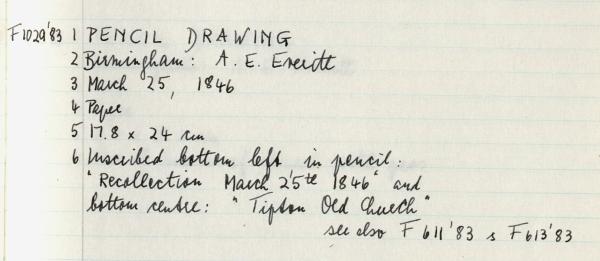 F1029'83 1 PENCIL DRAWING
2 Birmingham: A. E. Everitt
3 March 25, 1846
4 Paper
5 17.8 x 24 cm
6 Inscribed bottom left in pencil:
"Recollection March 25th 1846" and
bottom centre: "Tipton Old Church"
see also F611'83 & F613'83